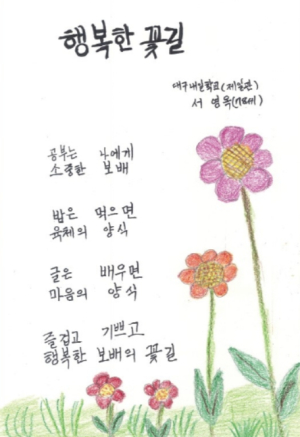 행복한 꽃길
대구내일학교(제일관)
서 영옥(78세)
공부는 나에게
소중한 보배
밥은 먹으면
육체의 양식
글은 배우면
마음의 양식
즐겁고 기쁘고
행복한 보배의 꽃길